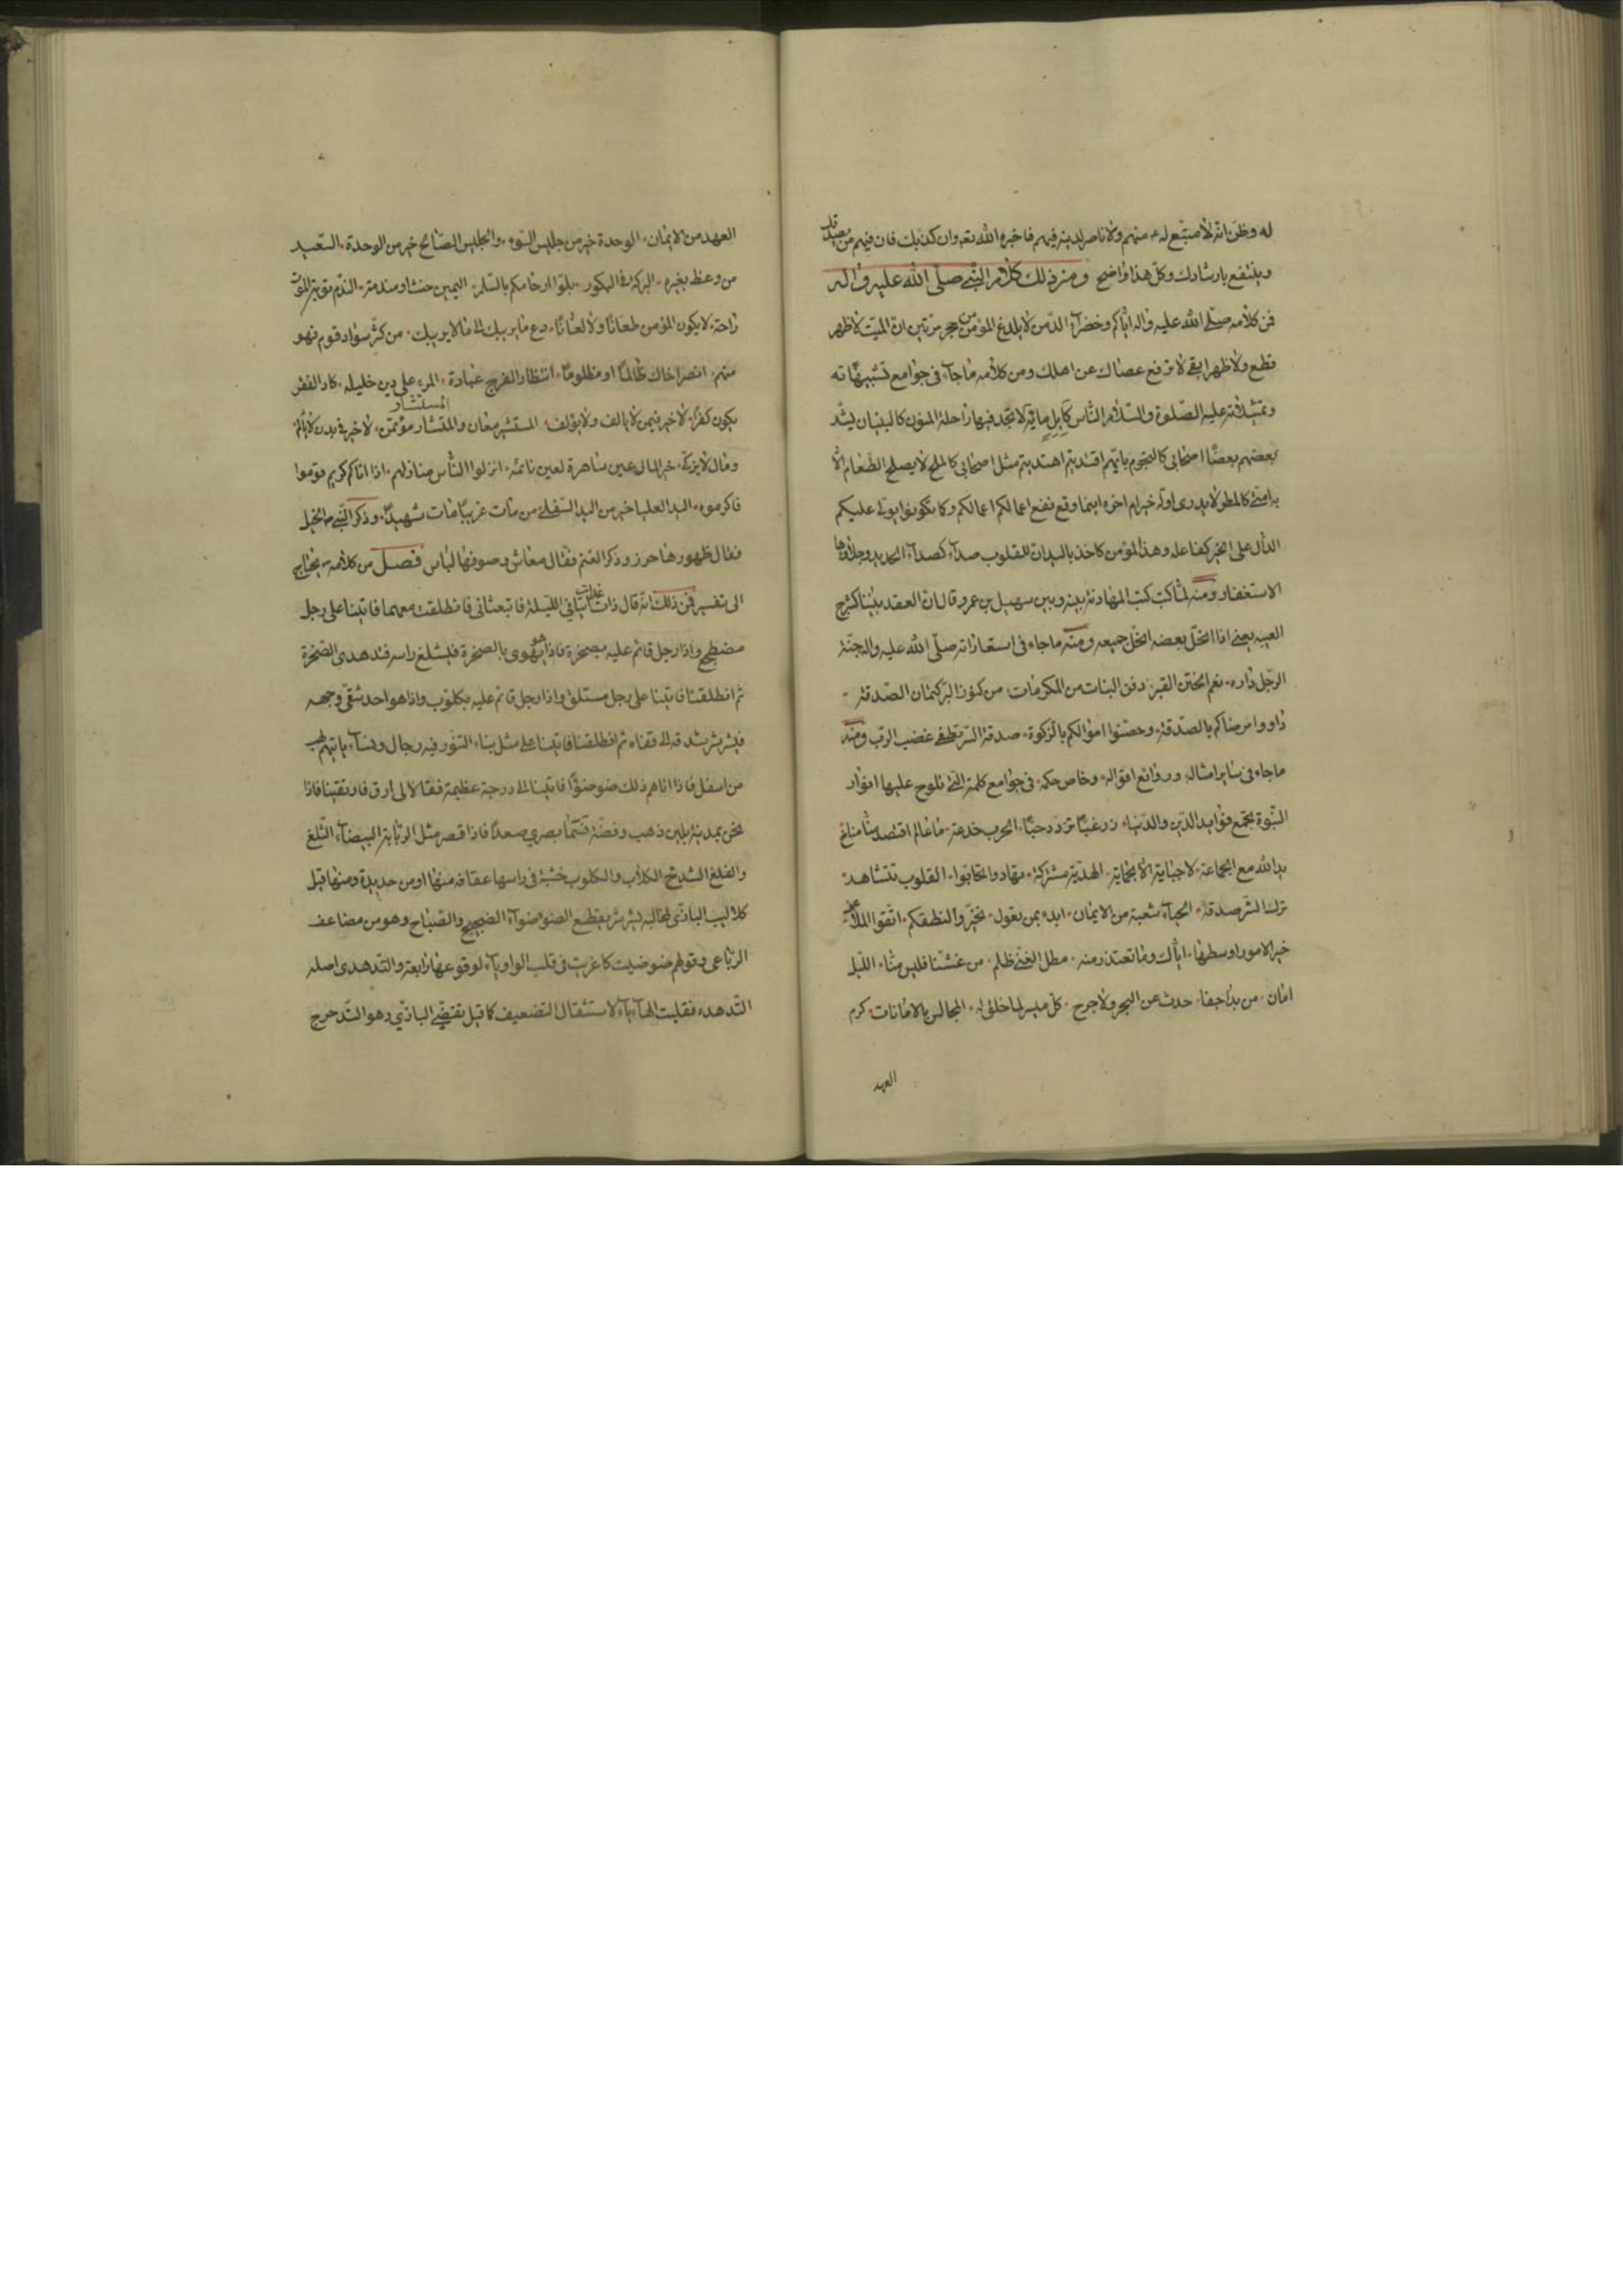 له وظن انه لا متبع له منهم ولا ناصر لدينه فيهم فاخبره الله تعه وان كذبك فان فيهم من يصدقك
وينتفع بارشادك وكل هذا واضح ومن ذلك كلام النبي صلى الله عليه واله
فمن كلامه صلى الله عليه واله اياكم وخضراء الدمن لا يلدغ المؤمن من جحر مرتين ان المنبت لا ظهر
قطع ولا ظهرا ابقى لا ترفع عصاك عن اهلك ومن كلامه ما جاء في جوامع تشبيهاته
وتمثيلاته عليه الصلوة والسلام الناس كابل مائة لا تجد فيها راحلة المؤمن كالبنيان يشد
بعضهم بعضا اصحابي كالنجوم بايهم اقتديتم اهتديتم مثل اصحابي كالملح لا يصلح الطعام الا
به امتى كالمطر لا يدرى اوله خير ام اخره اينما وقع نفع اعمالكم اعمالكم وكما تكونوا يولى عليكم
الدال على الخير كفاعله وهذا المؤمن كاخذ باليدان للقلوب صداء كصداء الحديد وجلاؤها
الاستغفار ومنه لما كتب كتب المهادنة بينه وبين سهيل بن عمرو قال ان العقد بيننا كشرج
العيبه يعني اذا انحل بعضه انحل جميعه ومنه ما جاء في استعاراته صلى الله عليه واله جنة
الرجل داره نعم الختن القبر دفن البنات من المكرمات من كنوز البر كتمان الصدقة
داووا مرضاكم بالصدقة وحصنوا اموالكم بالزكوة صدقة السر تطفى غضب الرب ومنه
ما جاء في ساير امثاله وروائع اقواله وخاص حكمه في جوامع كلمة التى تلوح عليها انوار
النبوة بجمع فوايد الدين والدنيا زر غبا تزدد حبا الحرب خدعة ما عال اقتصد
يد الله مع الجماعة لا جباية الا بحماية الهدية مشتركة تهادوا تحابوا القلوب تتشاهد
ترك الشر صدقة الحياء شعبة من الايمان ابدء بمن تعول تخيروا لنطفكم اتقوا الملاعن
خير الامور اوسطها اياك وما تعتذر منه مطل الغنى ظلم من غشنا فليس منا الليل
امان من بدا جفا حدث عن البحر ولا حرج كل ميسر لما خلق له المجالس بالامانات كرم
العهد
العهد من الايمان الوحدة خير من جليس السوء والجليس الصالح خير من الوحدة السعيد
من وعظ بغيره البركة في البكور بلوا ارحامكم بالسلم اليمين حنث او مندمة الندم توبة الموت
راحة لا يكون المؤمن طعانا ولا لعانا دع ما يريبك الى ما لا يريبك من كثر سواد قوم فهو
منهم انصر اخاك ظالما او مظلوما انتظار الفرج عبادة المرء على دين خليله كاد الفقر
يكون كفرا لا خير فيمن لا يالف ولا يؤلف المستشير معان والمستشار مؤتمن لا خير في بدن لا يألم
ومال لا يزكى خير المال عين ساهرة لعين نائمة انزلوا الناس منازلهم اذا اتاكم كريم قوم
فاكرموه اليد العليا خير من اليد السفلى من مات غريبا مات شهيدا وذكر النبي ص الخيل
فقال ظهورها حرز وذكر الغنم فقال معاش وصوفها لباس فصل من كلامه يحتاج
الى تفسير فمن ذلك انه قال ذات غداة اتاني الليلة فابتعثاني فانطلقت معهما فاتينا على رجل
مضطجع واذا رجل قائم عليه بصخرة فاذا هو يهوى بالصخرة فيشلغ راسه فتدهدى الصخرة
ثم انطلقنا فاتينا على رجل مستلق واذا رجل قائم عليه بكلوب واذا هو احد شقى وجهه
فيشرشر شدقه الى قفاه ثم انطلقنا فاتينا على مثل بناء التنور فيه رجال ونساء ياتيهم لهب
من اسفل فاذا اتاهم ذلك ضوضوا فاتينا الى درجة عظيمة فقالا لى ارق فارتقينا فاذا
نحن بمدينة بلبن ذهب وفضة فسما بصري صعدا فاذا قصر مثل الربابة البيضاء الثلغ
والفلغ الشدخ الكلاب والكلوب خشبة في راسها عقافة منها او من حديدة ومنها قيل
كلاليب البازي لمخالبه يشرشر يقطع الضوضواء الضجيج والصياح وهو من مضاعف
الرباعي وقولهم ضوضيت كاغريت في قلب الواو ياء لوقوعها رابعة والتدهدى اصله
التدهده فقلبت الهاء ياء لاستثقال التضعيف كما قيل تقضى البازي وهو التدحرج